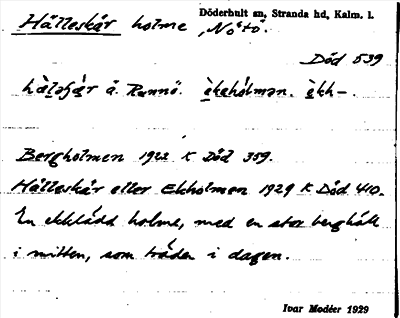 Hälleskär holme, Nötö. Döderhult sn, Stranda hd, Kalm. l.
Död 539
å. Runnö.
Bergholmen 1922 K Död 359.
Hälleskär eller Ekholmen 1929 K Död 410.
En ekklädd holme, med en stor berghäll
i mitten, som träder i dagen.
Ivar Modéer 1929